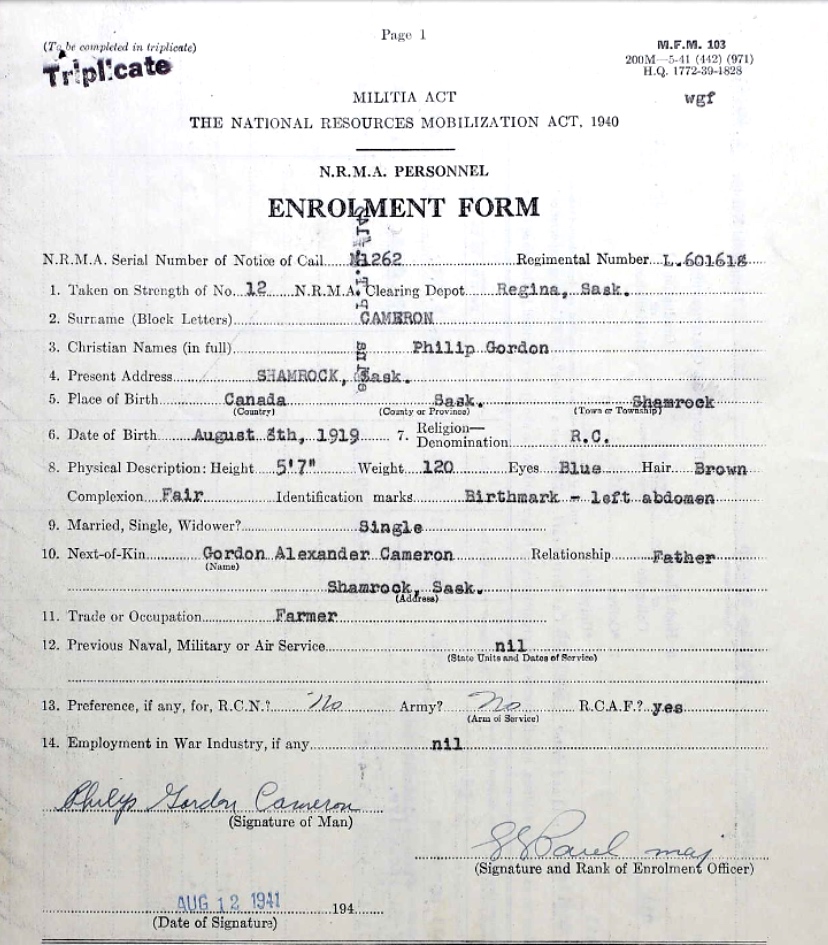 Page 1
(To be completed in triplicate)
Triplicate
M.F.M. 103
200M—5-41 (442) (971)
H.Q. 1772-39-1828
wgf
MILITIA ACT
THE NATIONAL RESOURCES MOBILIZATION ACT, 1940
N.R.M.A. PERSONNEL
ENROLMENT FORM
N.R.M.A. Serial Number of Notice of Call 1262 Regimental Number L.601618
1. Taken on Strength of No. 12 N.R.M.A. Clearing Depot Regina, Sask.
2. Surname (Block Letters) CAMERON
3. Christian Names (in full) Philip Gordon
4. Present Address SHAMROCK, Sask.
5. Place of Birth Canada Sask. Shamrock
(Country) (County or Province) (Town or Township)
6. Date of Birth August 8th, 1919 7. Religion—Denomination R.C.
8. Physical Description: Height 5'7" Weight 120 Eyes Blue Hair Brown
Complexion Fair Identification marks Birthmark - left abdomen
9. Married, Single, Widower? Single
10. Next-of-Kin Gordon Alexander Cameron Relationship Father
(Name)
Shamrock, Sask.
(Address)
11. Trade or Occupation Farmer
12. Previous Naval, Military or Air Service nil
(State Units and Dates of Service)
13. Preference, if any, for, R.C.N.? No Army? No R.C.A.F.? yes
(Arm of Service)
14. Employment in War Industry, if any nil
Philip Gordon Cameron
(Signature of Man)
maj
(Signature and Rank of Enrolment Officer)
AUG 12 1941 194
(Date of Signature)